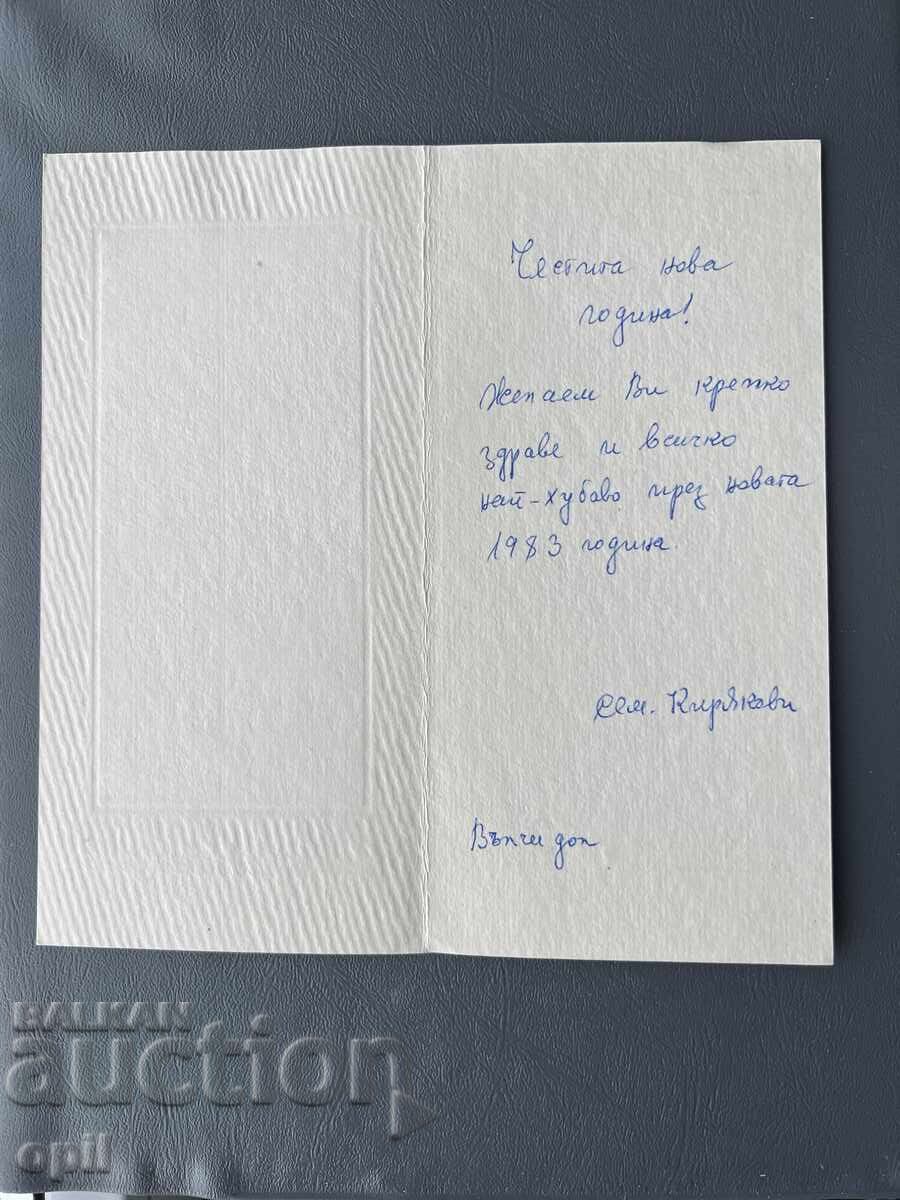 Честита нова
година!
Желаем Ви крепко
здраве и всичко
най-хубаво през новата
1983 година.
сем. Кирякови
Вълчи дол
BALKAN
auction
opil